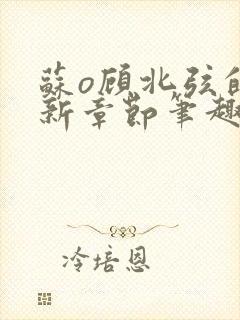 蘇o顧北弦的
新章節筆趣
冷培恩